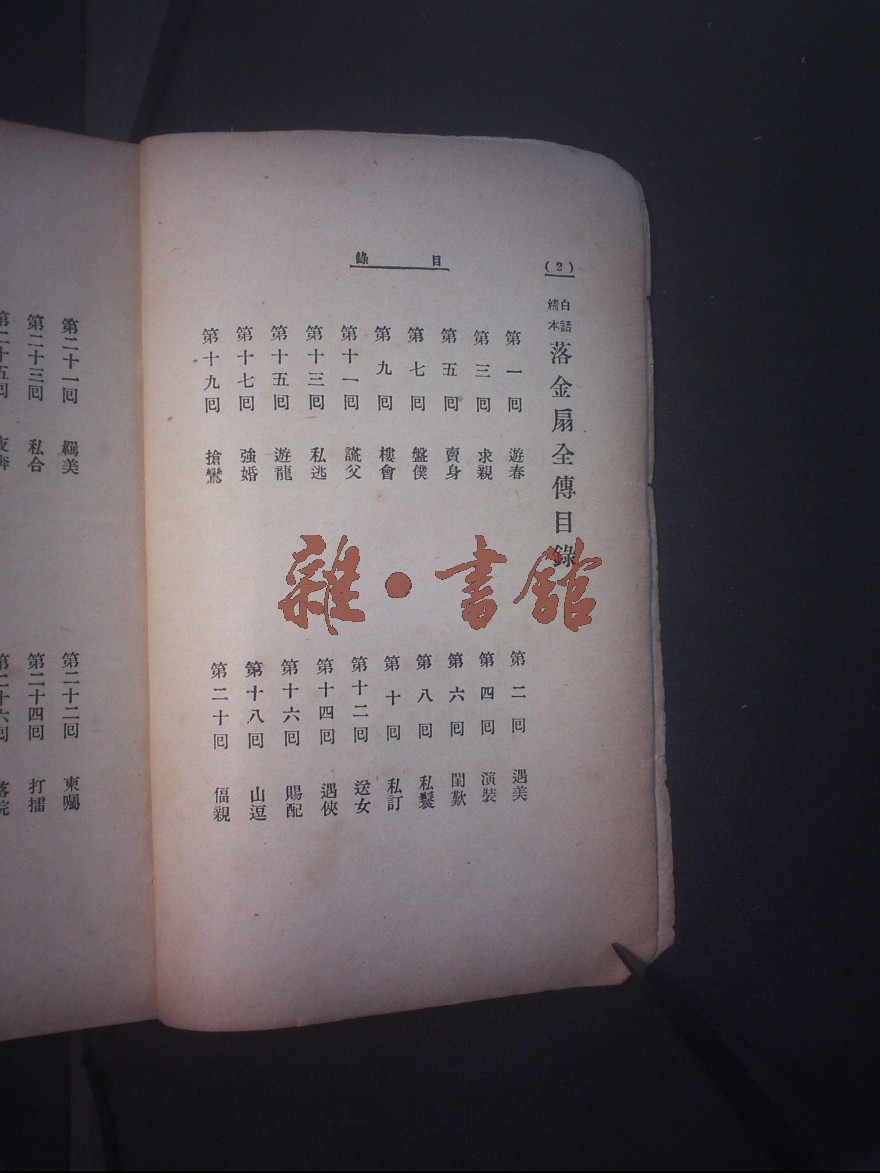 目錄
(2)
白話
繡本
落金扇全傳目錄
第一回 遊春
第二回 遇美
第三回 求親
第四回 演裝
第五回 賣身
第六回 閨歎
第七回 盤僕
第八回 私鬟
第九回 樓會
第十回 私訂
第十一回 謊父
第十二回 送女
第十三回 私逃
第十四回 遇俠
第十五回 遊龍
第十六回 賜配
第十七回 強婚
第十八回 山逗
第十九回 搶鸞
第二十回 偪親
第二十一回 美
第二十二回 東囑
第二十三回 私合
第二十四回 打擂
第二十五回
第二十六回
雜·書館